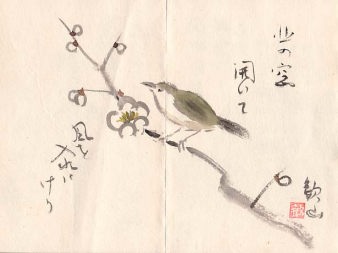 北の窓
開いて
風を
入れに
けり